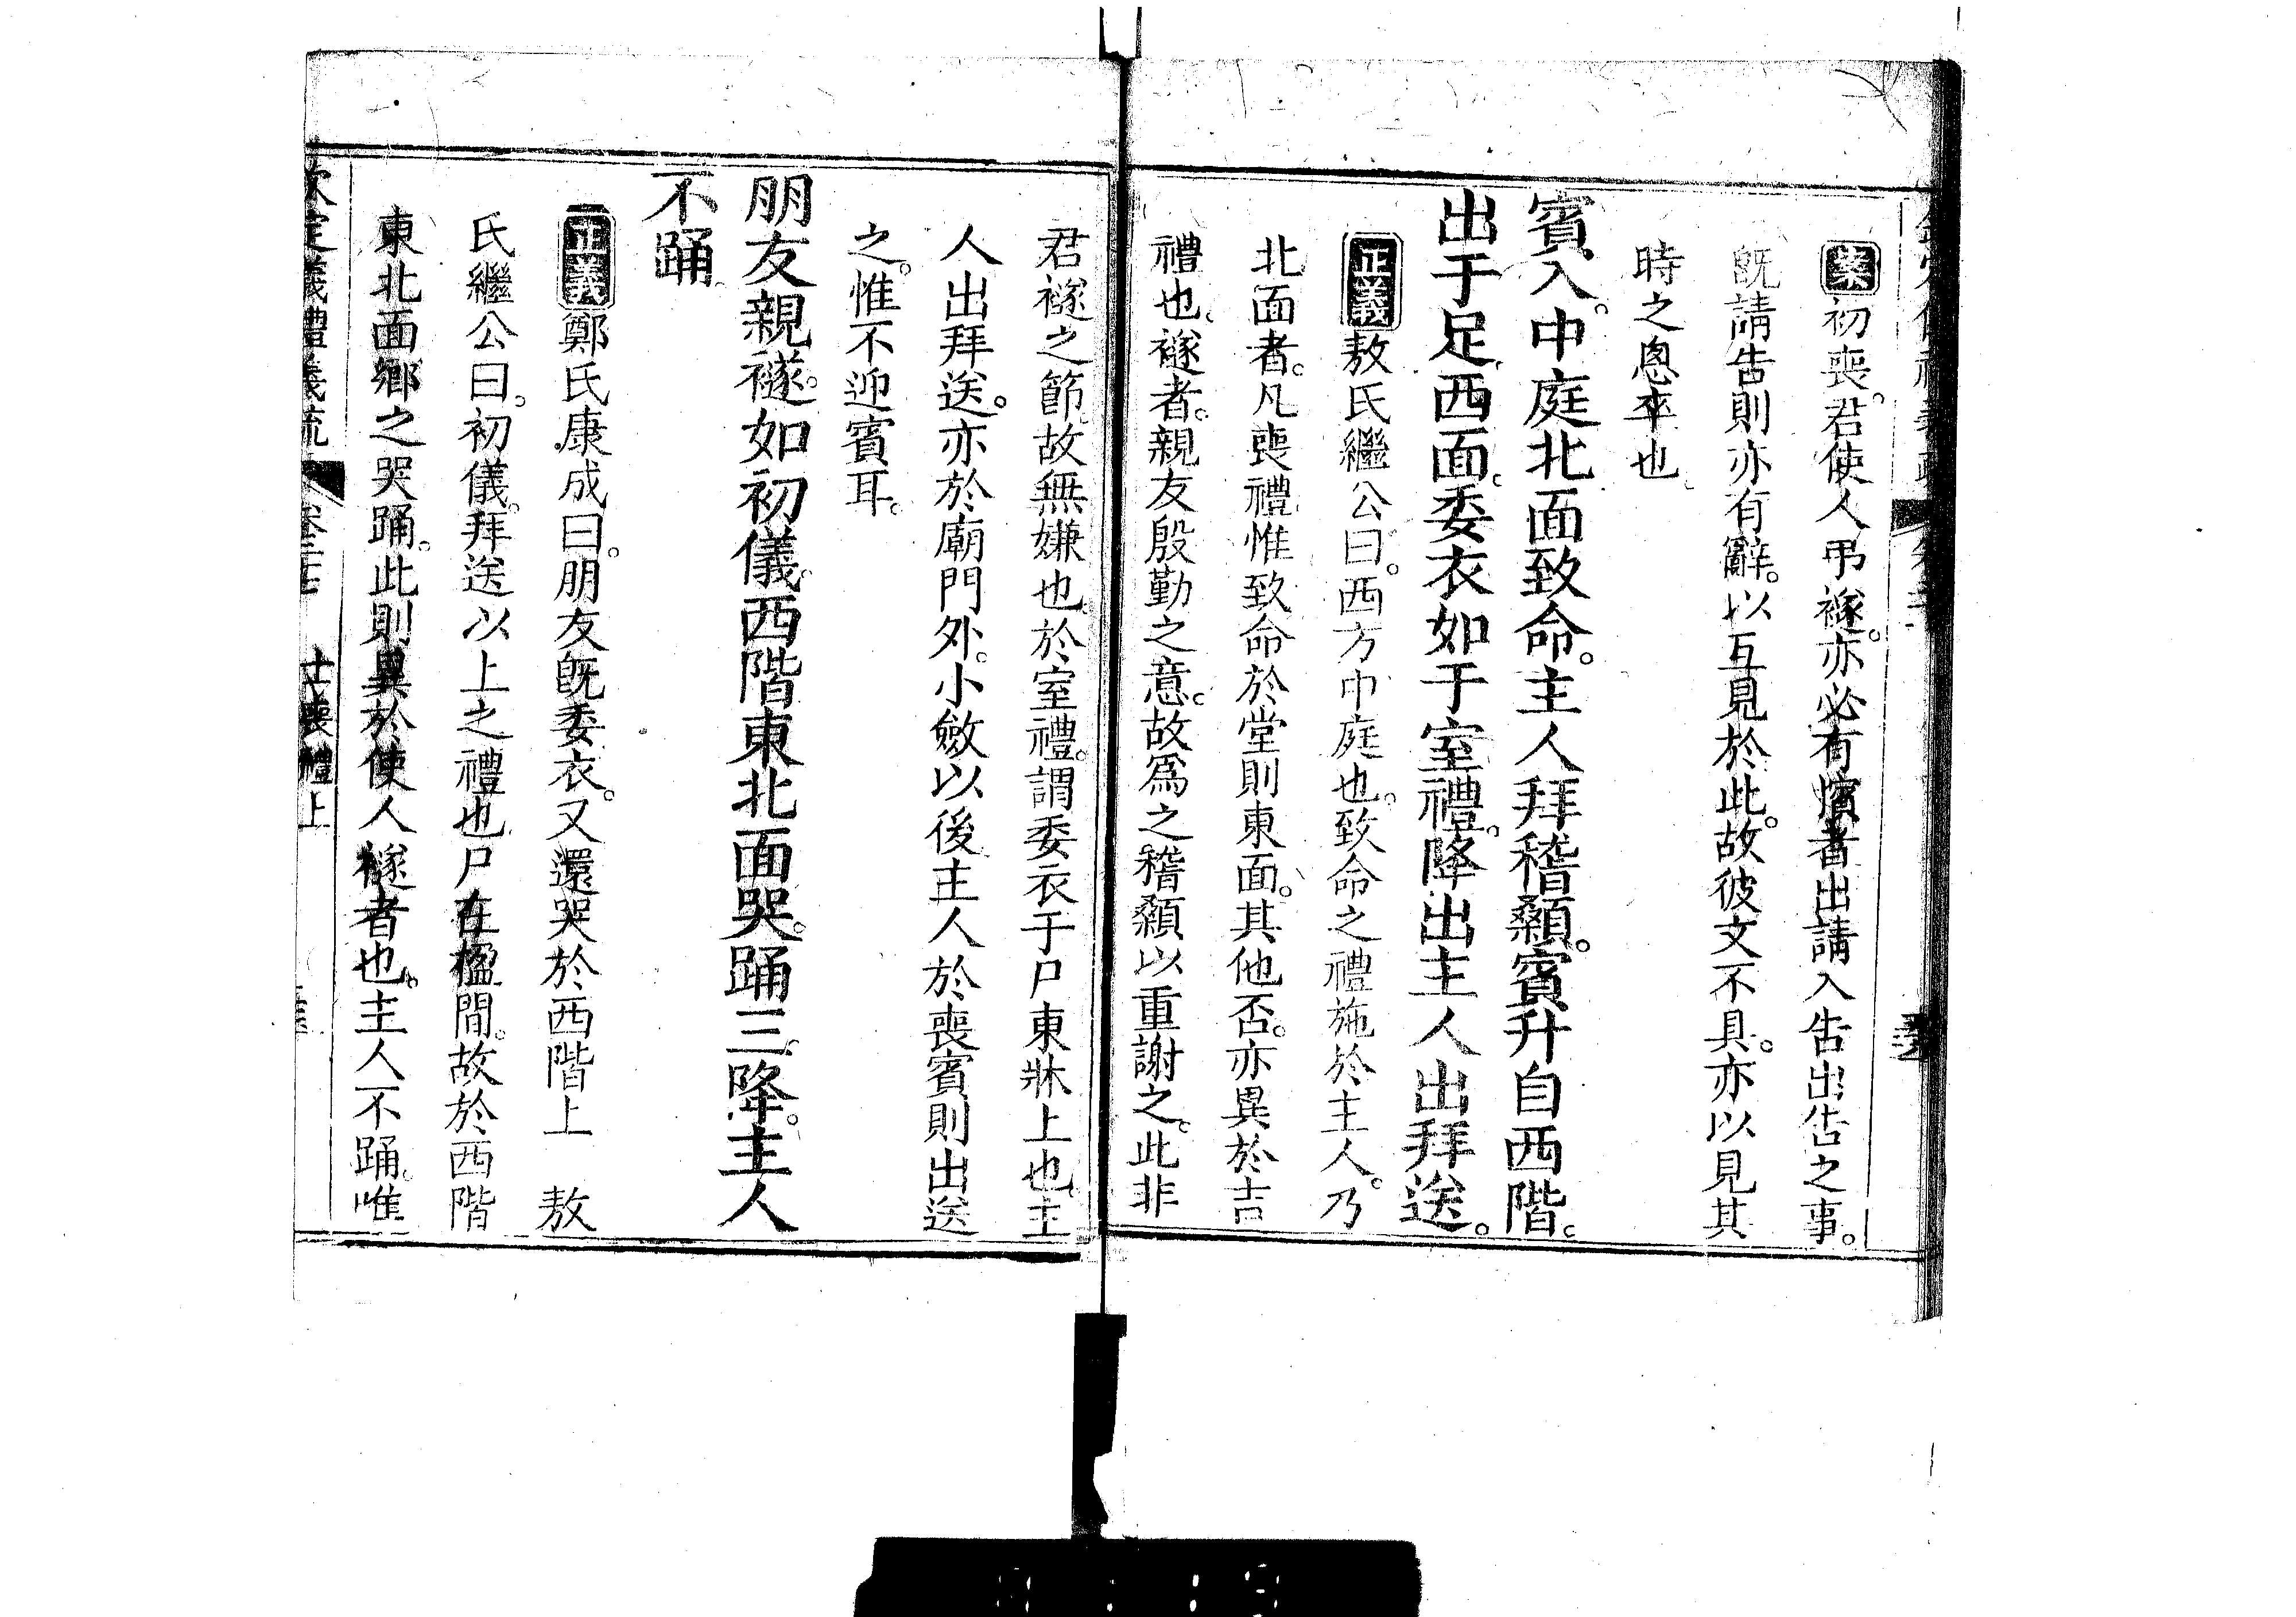 案初喪。君使人弔襚。亦必有擯者出請入告出告之事。
旣請告則亦有辭。以互見於此。故彼文不具。亦以見其
時之悤卒也。
賓入。中庭北面致命。主人拜稽顙。賓升自西階。
出于足。西面委衣。如于室禮。降出。主人出拜送。
正義敖氏繼公曰。西方中庭也。致命之禮施於主人。乃
北面者。凡喪禮惟致命於堂則東面。其他否。亦異於吉
禮也。襚者。親友殷勤之意。故爲之稽顙以重謝之。此非
君襚之節。故無嫌也。於室禮。謂委衣于尸東牀上也。主
人出拜送。亦於廟門外。小斂以後主人於喪賓則出送
之。惟不迎賓耳。
朋友親襚。如初儀。西階東北面哭。踊三。降。主人
不踊。
正義鄭氏康成曰。朋友旣委衣。又還哭於西階上　敖
氏繼公曰。初儀。拜送以上之禮也。尸在楹間。故於西階
東北面鄉之哭踊。此則異於使人襚者也。主人不踊。唯
欽定儀禮義疏　士喪禮上